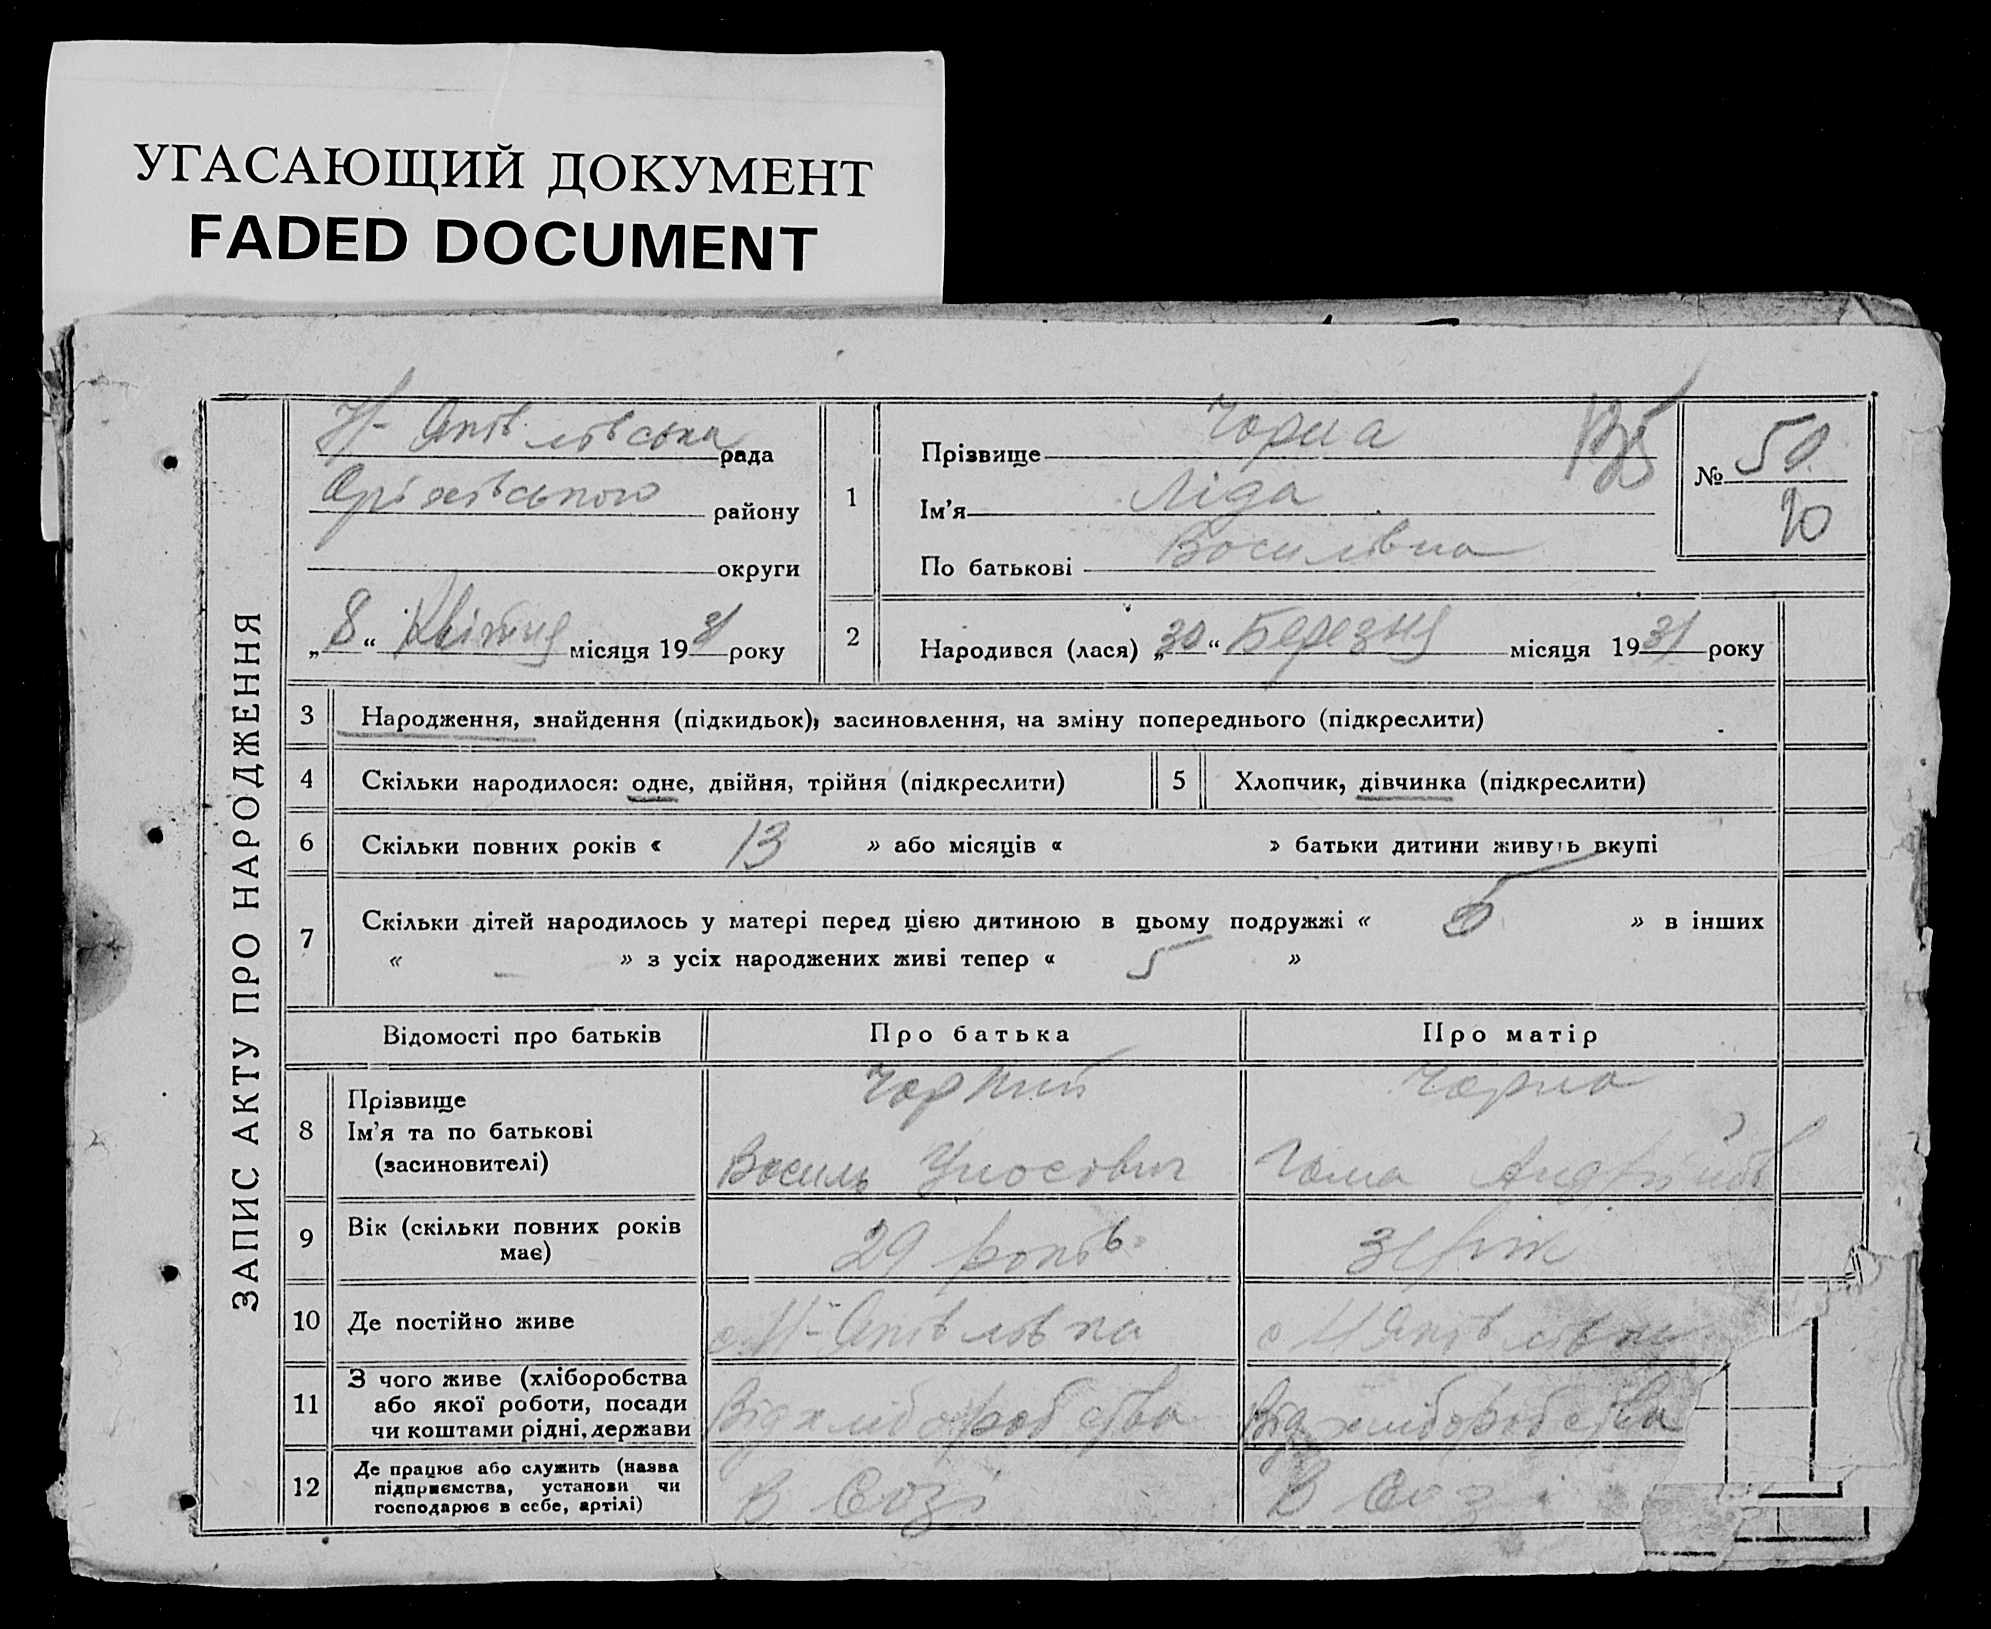 УГАСАЮЩИЙ ДОКУМЕНТ
FADED DOCUMENT
ЗАПИС АКТУ ПРО НАРОДЖЕННЯ
Н-Яківлівська рада
Оріхівського району
округи
„ 8 “ Квітня місяця 1931 року
1
Прізвище Чорна
Ім'я Ліда
По батькові Василівна
№ 50
20
2
Народився (лася) „30“ Березня місяця 1931 року
3 Народження, знайдення (підкидьок), засиновлення, на зміну попереднього (підкреслити)
4 Скільки народилося: одне, двійня, трійня (підкреслити)
5 Хлопчик, дівчинка (підкреслити)
6 Скільки повних років « 13 » або місяців « » батьки дитини живуть вкупі
7 Скільки дітей народилось у матері перед цією дитиною в цьому подружжі « » в інших
« – » з усіх народжених живі тепер « 5 »
Відомості про батьків Про батька Про матір
8 Прізвище
Ім'я та по батькові
(засиновителі)
Чорний
Василь
Чорна
9 Вік (скільки повних років
має)
29 років
31 рік
10 Де постійно живе
с Н-Яківлівка
с Н Яківлівка
11 З чого живе (хліборобства
або якої роботи, посади
чи коштами рідні, держави
Від хліборобства
Від хліборобства
12 Де працює або служить (назва
підприємства, установи чи
господарює в себе, артілі)
В Созі
В Созі